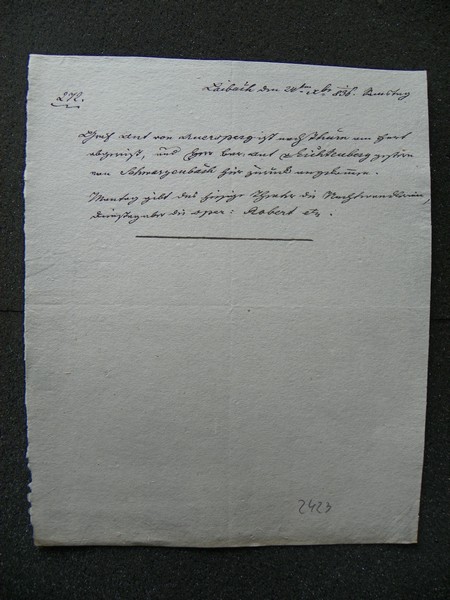 272.
Laibach den 24ten Samstag
Graf Ant von Auersperg ist nach Thurn am Hart
abgereist, und Herr Bar. Ant gestern
von Schwarzenbach hier zurück angekommen.
Montag gibt das hiesige Theater die Nachtwandlerin,
Dienstag aber die Oper: Robert etc.
2423